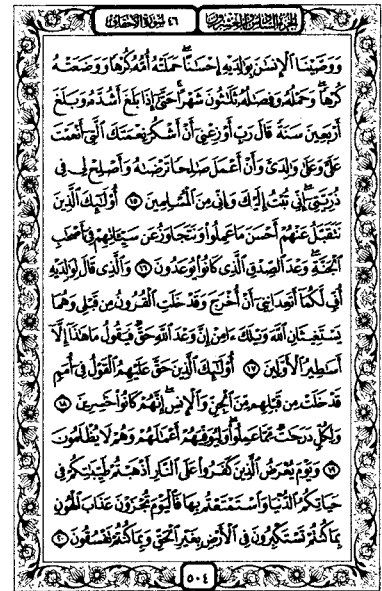 الجزء السادس والعشرون ٤٦ سورة الأحقاف
وَوَصَّيْنَا ٱلْإِنسَٰنَ بِوَٰلِدَيْهِ إِحْسَٰنًا حَمَلَتْهُ أُمُّهُۥ كُرْهًا وَوَضَعَتْهُ
كُرْهًا وَحَمْلُهُۥ وَفِصَٰلُهُۥ ثَلَٰثُونَ شَهْرًا حَتَّىٰٓ إِذَا بَلَغَ أَشُدَّهُۥ وَبَلَغَ
أَرْبَعِينَ سَنَةً قَالَ رَبِّ أَوْزِعْنِىٓ أَنْ أَشْكُرَ نِعْمَتَكَ ٱلَّتِىٓ أَنْعَمْتَ
عَلَىَّ وَعَلَىٰ وَٰلِدَىَّ وَأَنْ أَعْمَلَ صَٰلِحًا تَرْضَىٰهُ وَأَصْلِحْ لِى فِى
ذُرِّيَّتِىٓ إِنِّى تُبْتُ إِلَيْكَ وَإِنِّى مِنَ ٱلْمُسْلِمِينَ ١٥ أُو۟لَٰٓئِكَ ٱلَّذِينَ
نَتَقَبَّلُ عَنْهُمْ أَحْسَنَ مَا عَمِلُوا۟ وَنَتَجَاوَزُ عَن سَيِّـَٔاتِهِمْ فِىٓ أَصْحَٰبِ
ٱلْجَنَّةِ وَعْدَ ٱلصِّدْقِ ٱلَّذِى كَانُوا۟ يُوعَدُونَ ١٦ وَٱلَّذِى قَالَ لِوَٰلِدَيْهِ
أُفٍّ لَّكُمَآ أَتَعِدَانِنِىٓ أَنْ أُخْرَجَ وَقَدْ خَلَتِ ٱلْقُرُونُ مِن قَبْلِى وَهُمَا
يَسْتَغِيثَانِ ٱللَّهَ وَيْلَكَ ءَامِنْ إِنَّ وَعْدَ ٱللَّهِ حَقٌّ فَيَقُولُ مَا هَٰذَآ إِلَّآ
أَسَٰطِيرُ ٱلْأَوَّلِينَ ١٧ أُو۟لَٰٓئِكَ ٱلَّذِينَ حَقَّ عَلَيْهِمُ ٱلْقَوْلُ فِىٓ أُمَمٍ
قَدْ خَلَتْ مِن قَبْلِهِم مِّنَ ٱلْجِنِّ وَٱلْإِنسِ إِنَّهُمْ كَانُوا۟ خَٰسِرِينَ ١٨
وَلِكُلٍّ دَرَجَٰتٌ مِّمَّا عَمِلُوا۟ وَلِيُوَفِّيَهُمْ أَعْمَٰلَهُمْ وَهُمْ لَا يُظْلَمُونَ
١٩ وَيَوْمَ يُعْرَضُ ٱلَّذِينَ كَفَرُوا۟ عَلَى ٱلنَّارِ أَذْهَبْتُمْ طَيِّبَٰتِكُمْ فِى
حَيَاتِكُمُ ٱلدُّنْيَا وَٱسْتَمْتَعْتُم بِهَا فَٱلْيَوْمَ تُجْزَوْنَ عَذَابَ ٱلْهُونِ
بِمَا كُنتُمْ تَسْتَكْبِرُونَ فِى ٱلْأَرْضِ بِغَيْرِ ٱلْحَقِّ وَبِمَا كُنتُمْ تَفْسُقُونَ ٢٠
٥٠٤